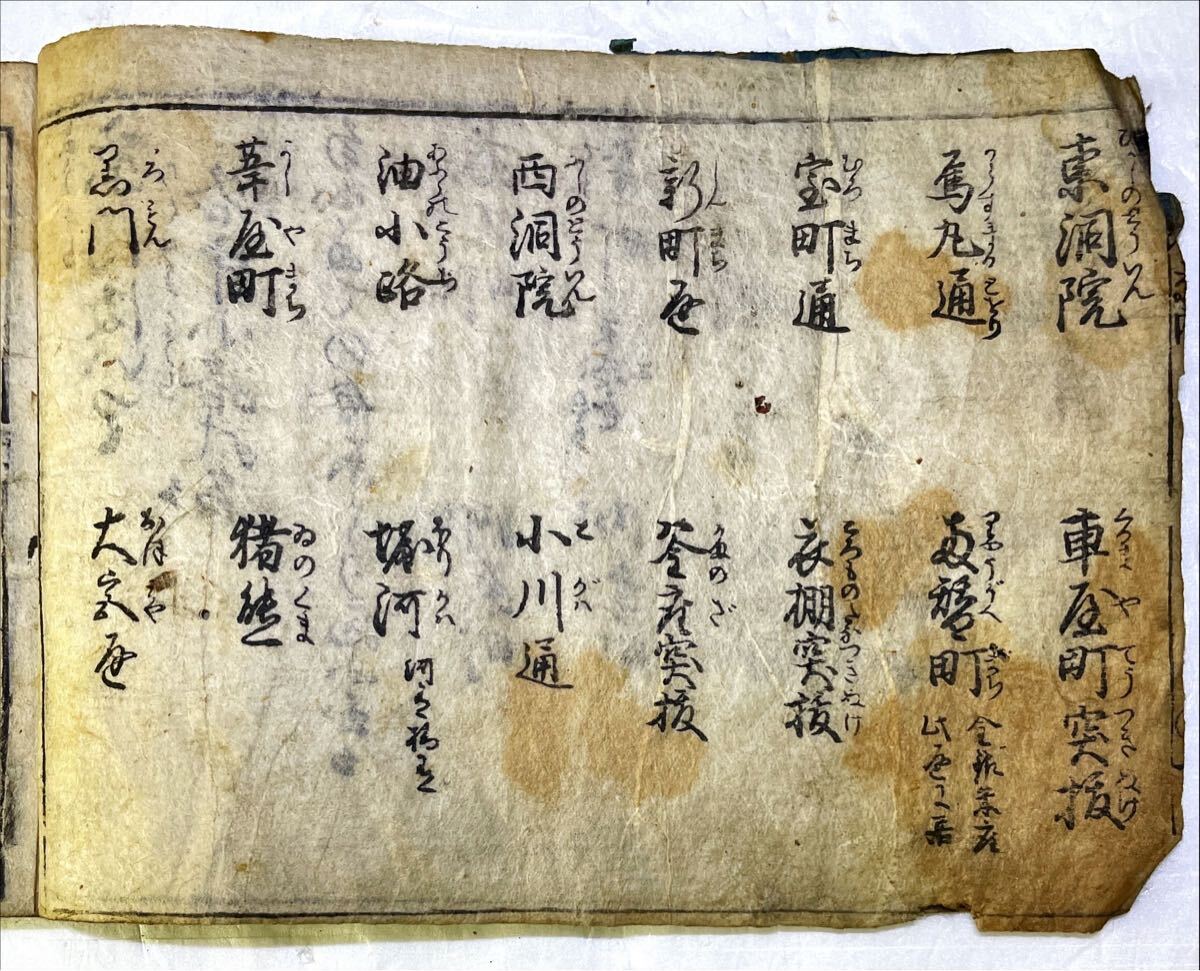 ひがしのとうゐん
東洞院
くるまやてうつきぬけ
車屋町突抜
からすまるとをり
烏丸通
りやうがへまち
両替町
金銀朱座
此通ニ有
むろまち
室町通
ころものたなつきぬけ
衣棚突抜
しんまち
新町通
かまのざ
釜座突抜
にしのとうゐん
西洞院
こがハ
小川通
あぶらのこうぢ
油小路
ほりかハ
堀河
よしやまち
葦屋町
ゐのくま
猪熊
くろもん
黒門
おほみや
大宮通